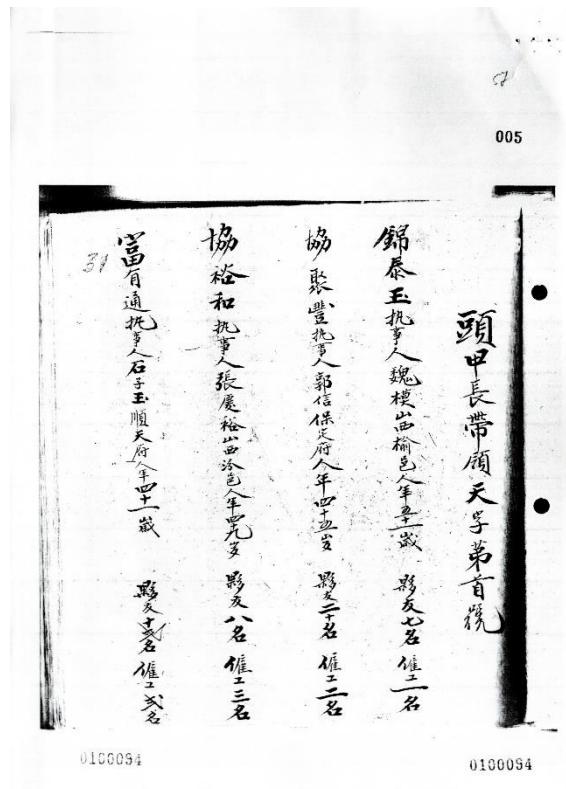 005
頭甲長帶領天字第首號
錦泰玉执事人魏模山西榆邑人年五十一歲 夥友七名 僱工一名
協聚豐执事人郭信保定府人年四十五岁 夥友二十名 僱工二名
協裕和执事人張慶裕山西汾邑人年四十九岁 夥友八名 僱工三名
富有通执事人石子玉順天府人年四十一歲 夥友十弍名 僱工弍名
31
0100094
0100094